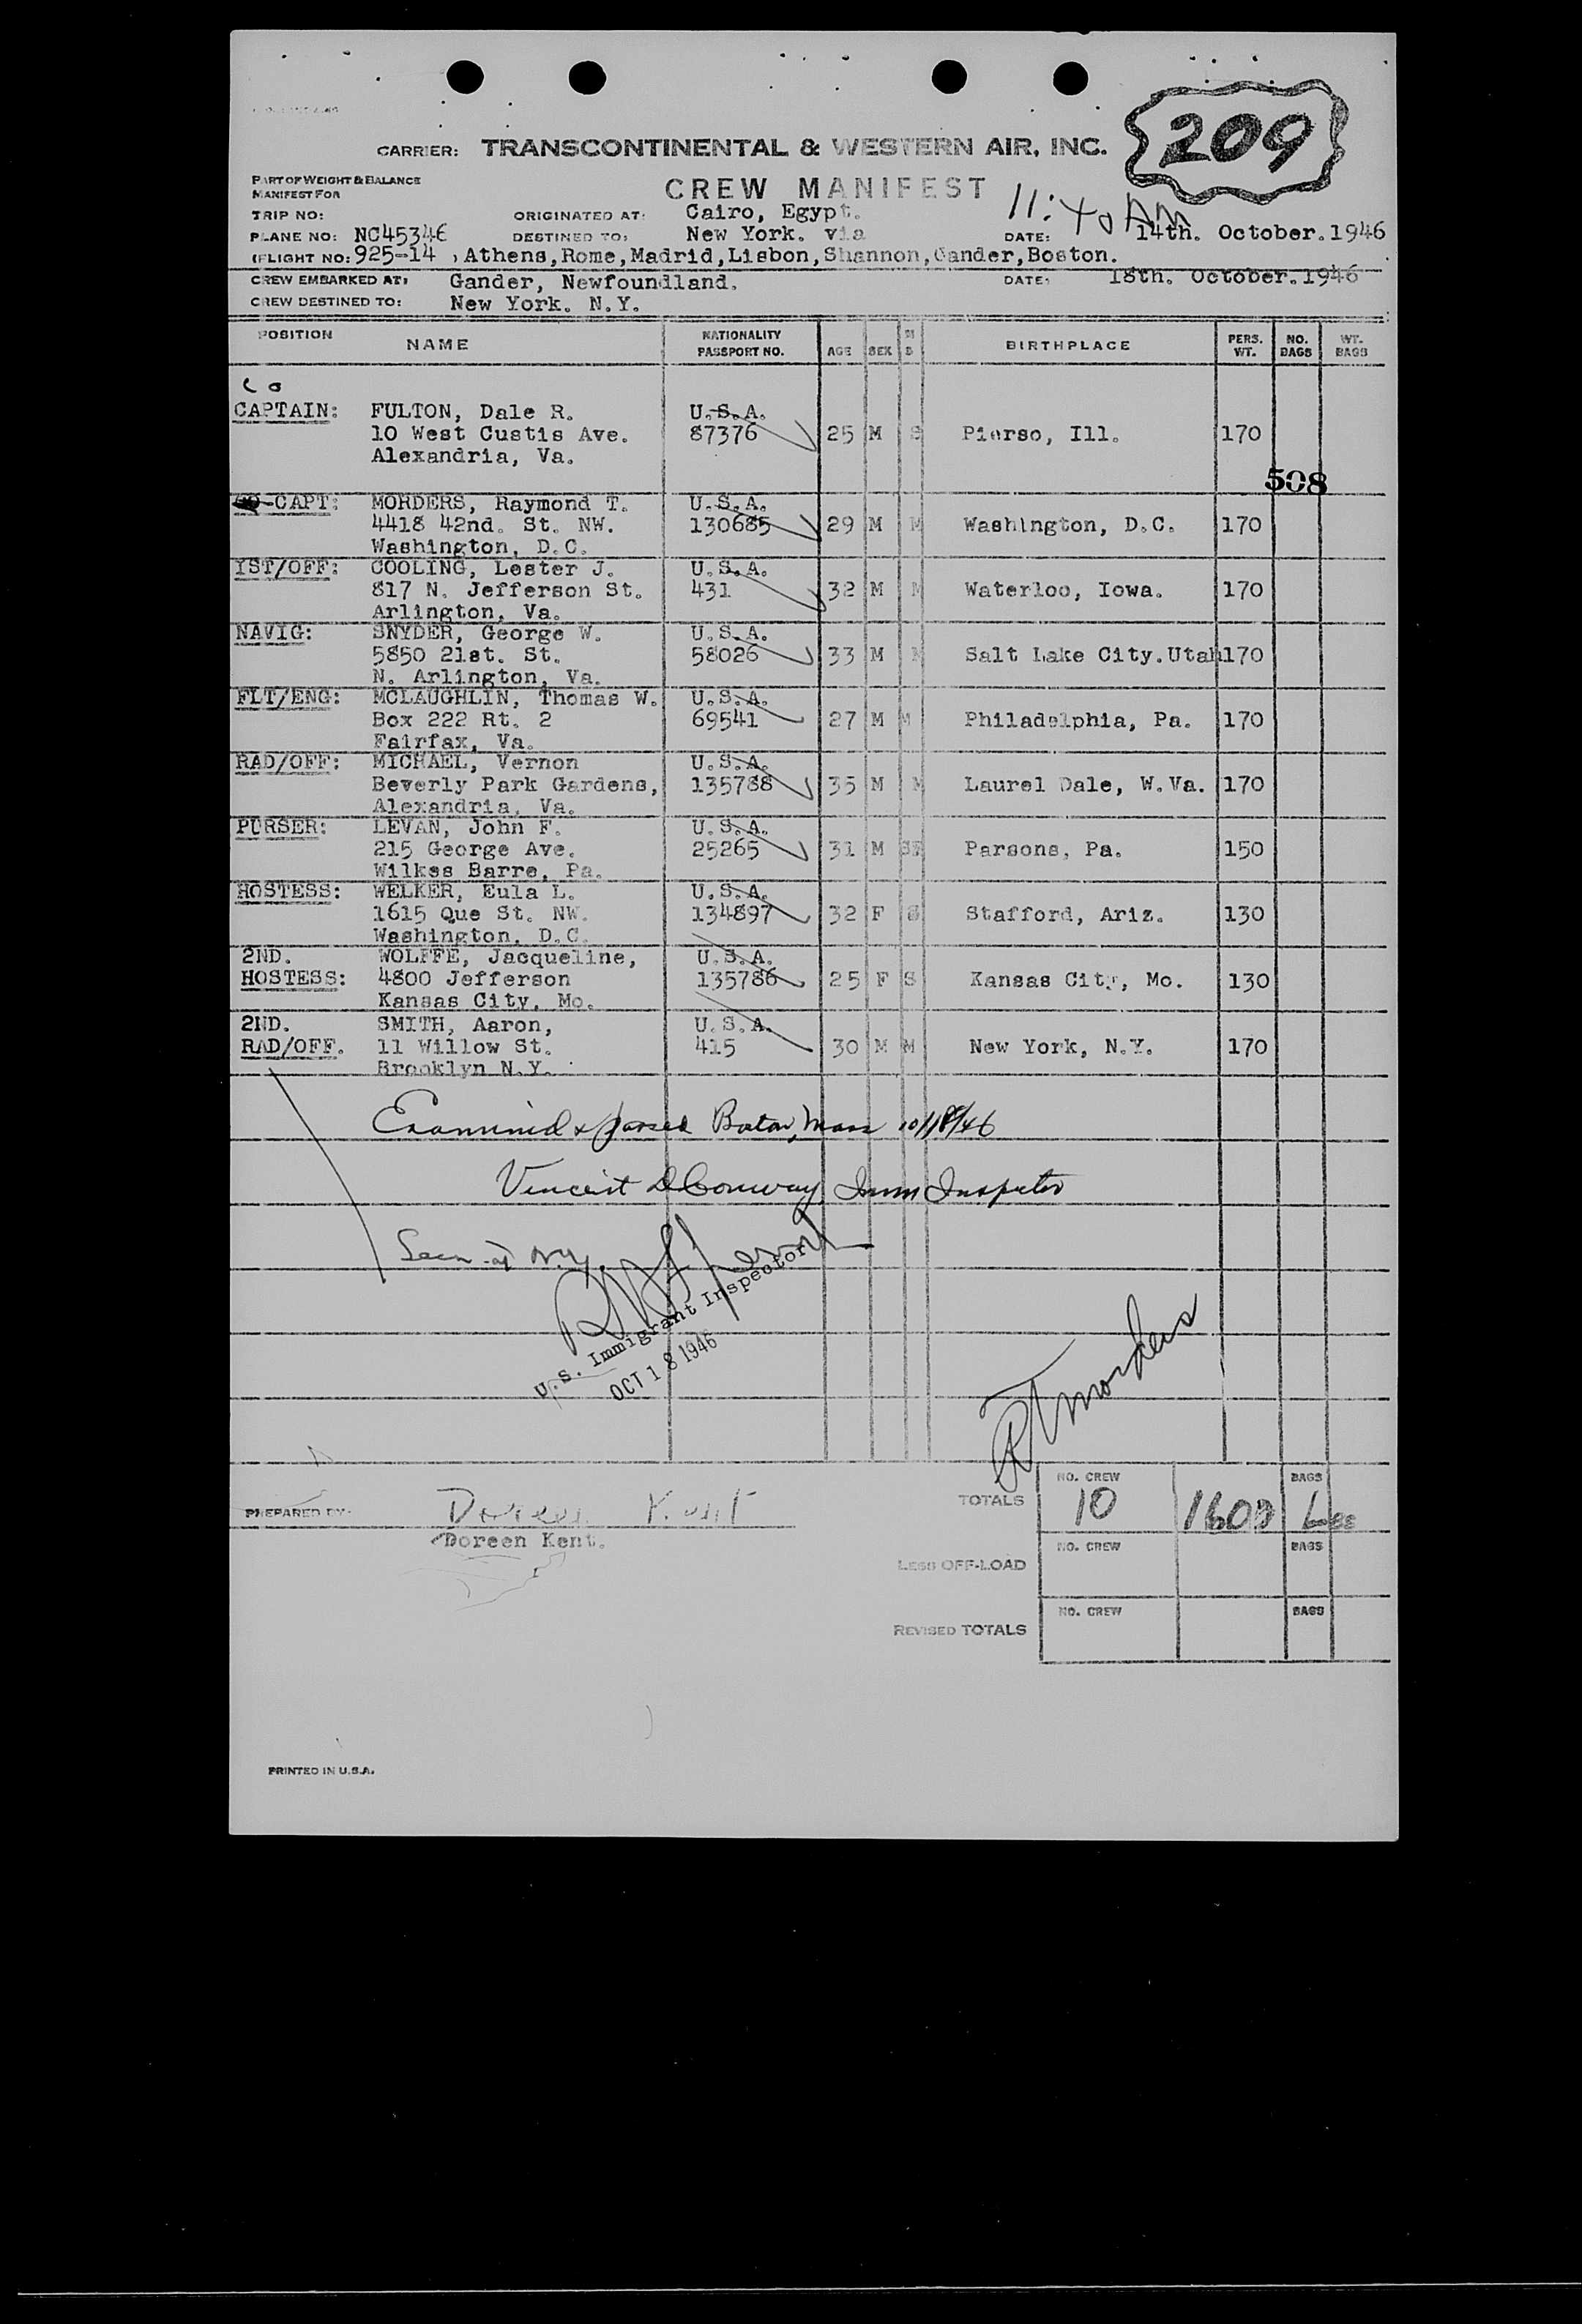 209
CARRIER: TRANSCONTINENTAL & WESTERN AIR, INC.
PART OF WEIGHT & BALANCE
MANIFEST FOR
CREW MANIFEST
TRIP NO: ORIGINATED AT: Cairo, Egypt.
PLANE NO: NC45346 DESTINED TO: New York. via DATE: 14th. October.1946
(FLIGHT NO: 925-14 ) Athens,Rome,Madrid,Lisbon,Shannon,Gander,Boston.
CREW EMBARKED AT: Gander, Newfoundland. DATE: 18th. October.1946
CREW DESTINED TO: New York. N.Y.
POSITION NAME NATIONALITY PASSPORT NO. AGE SEX BIRTHPLACE PERS. WT. NO. BAGS WT. BAGS
Co
CAPTAIN: FULTON, Dale R. U.S.A.
10 West Custis Ave. 87376 25 M S Pierso, Ill. 170
Alexandria, Va.
508
-CAPT: MORDERS, Raymond T. U.S.A.
4418 42nd. St. NW. 130685 29 M M Washington, D.C. 170
Washington, D.C.
1ST/OFF: COOLING, Lester J. U.S.A.
817 N. Jefferson St. 431 32 M M Waterloo, Iowa. 170
Arlington, Va.
NAVIG: SNYDER, George W. U.S.A.
5850 21st. St. 58026 33 M M Salt Lake City.Utah 170
N. Arlington, Va.
FLT/ENG: MCLAUGHLIN, Thomas W. U.S.A.
Box 222 Rt. 2 69541 27 M M Philadelphia, Pa. 170
Fairfax, Va.
RAD/OFF: MICHAEL, Vernon U.S.A.
Beverly Park Gardens, 135788 35 M M Laurel Dale, W.Va. 170
Alexandria, Va.
PURSER: LEVAN, John F. U.S.A.
215 George Ave. 25265 31 M Parsons, Pa. 150
Wilkes Barre, Pa.
HOSTESS: WELKER, Eula L. U.S.A.
1615 Que St. NW. 134897 32 F S Stafford, Ariz. 130
Washington, D.C.
2ND. WOLFFE, Jacqueline, U.S.A.
HOSTESS: 4800 Jefferson 135786 25 F S Kansas City, Mo. 130
Kansas City, Mo.
2ND. SMITH, Aaron, U.S.A.
RAD/OFF. 11 Willow St. 415 30 M M New York, N.Y. 170
Brooklyn N.Y.
Examined & passed Boston, Mass 10/18/46
Vincent D Conway, Imm Inspector
Seen at N.Y.
U.S. Immigrant Inspector
OCT 18 1946
RTMorders
PREPARED BY: Doreen Kent
Doreen Kent.
TOTALS NO. CREW 10 1600 BAGS
LESS OFF-LOAD NO. CREW BAGS
REVISED TOTALS NO. CREW BAGS
PRINTED IN U.S.A.